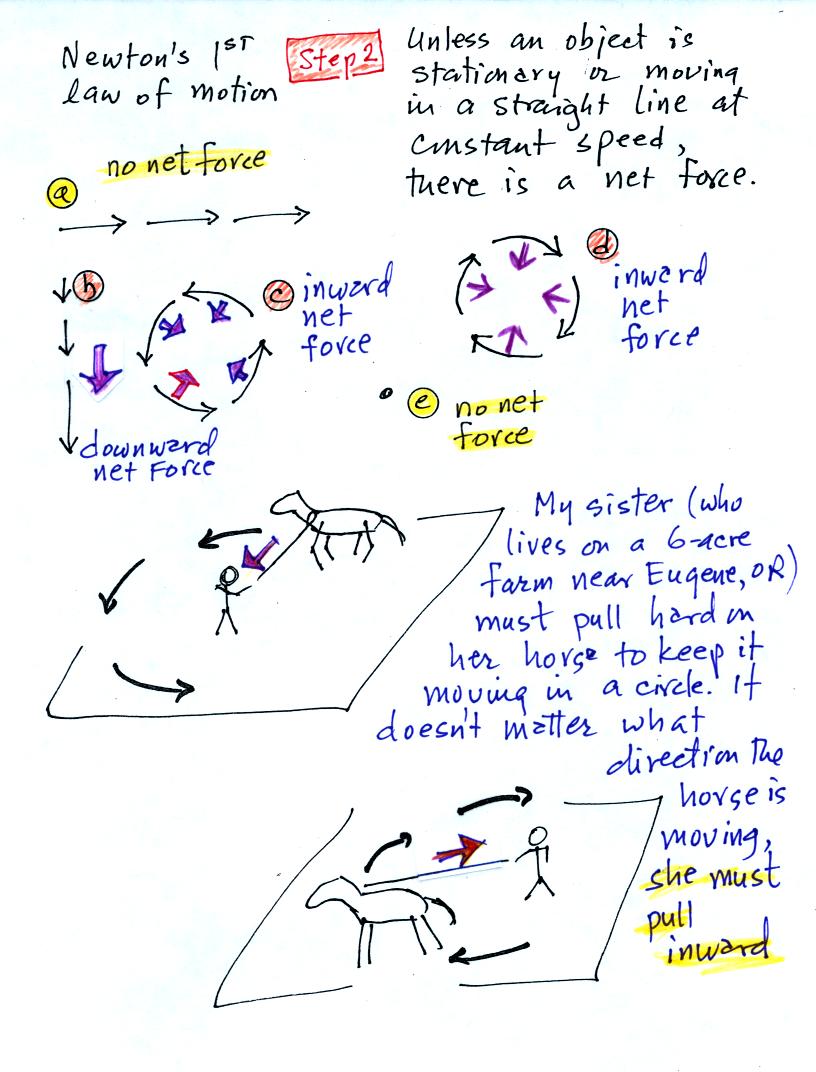 Newton's 1ST
law of motion
Step 2
Unless an object is
stationary or moving
in a straight line at
constant speed,
there is a net force.
a
no net force
b
downward
net Force
c
inward
net
force
d
inward
net
force
e
no net
force
My sister (who
lives on a 6-acre
farm near Eugene, OR)
must pull hard on
her horse to keep it
moving in a circle. It
doesn't matter what
direction the
horse is
moving,
she must
pull
inward